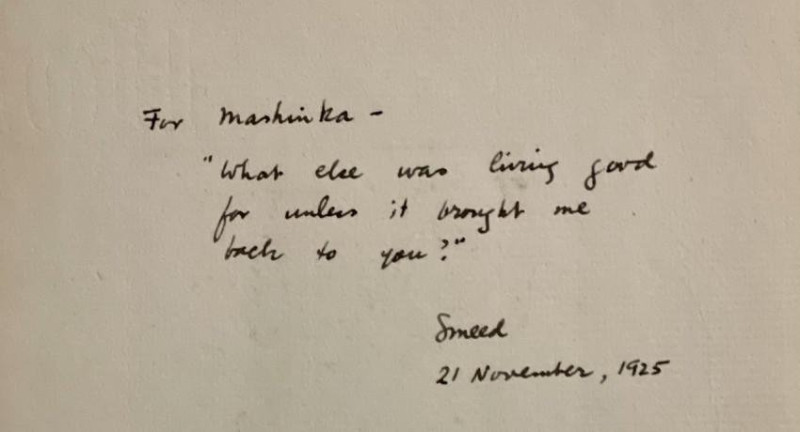 For Mashinka -
"What else was living good
for unless it brought me
back to you?"
Smeed
21 November, 1925